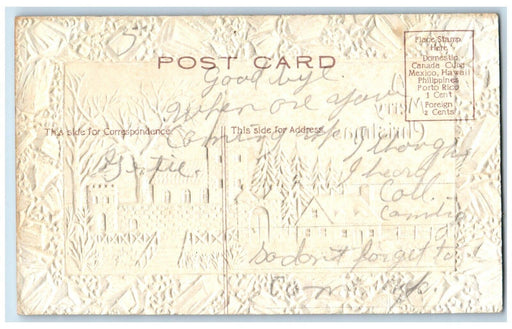 POST CARD
Place Stamp
Here
Domestic
Canada Cuba
Mexico, Hawaii
Philippines
Porto Rico
1 Cent
Foreign
2 Cents
This side for Correspondence.
This side for Address.
Good bye
When are you
Coming up I thought
I heard
so don't forget to
Come up.